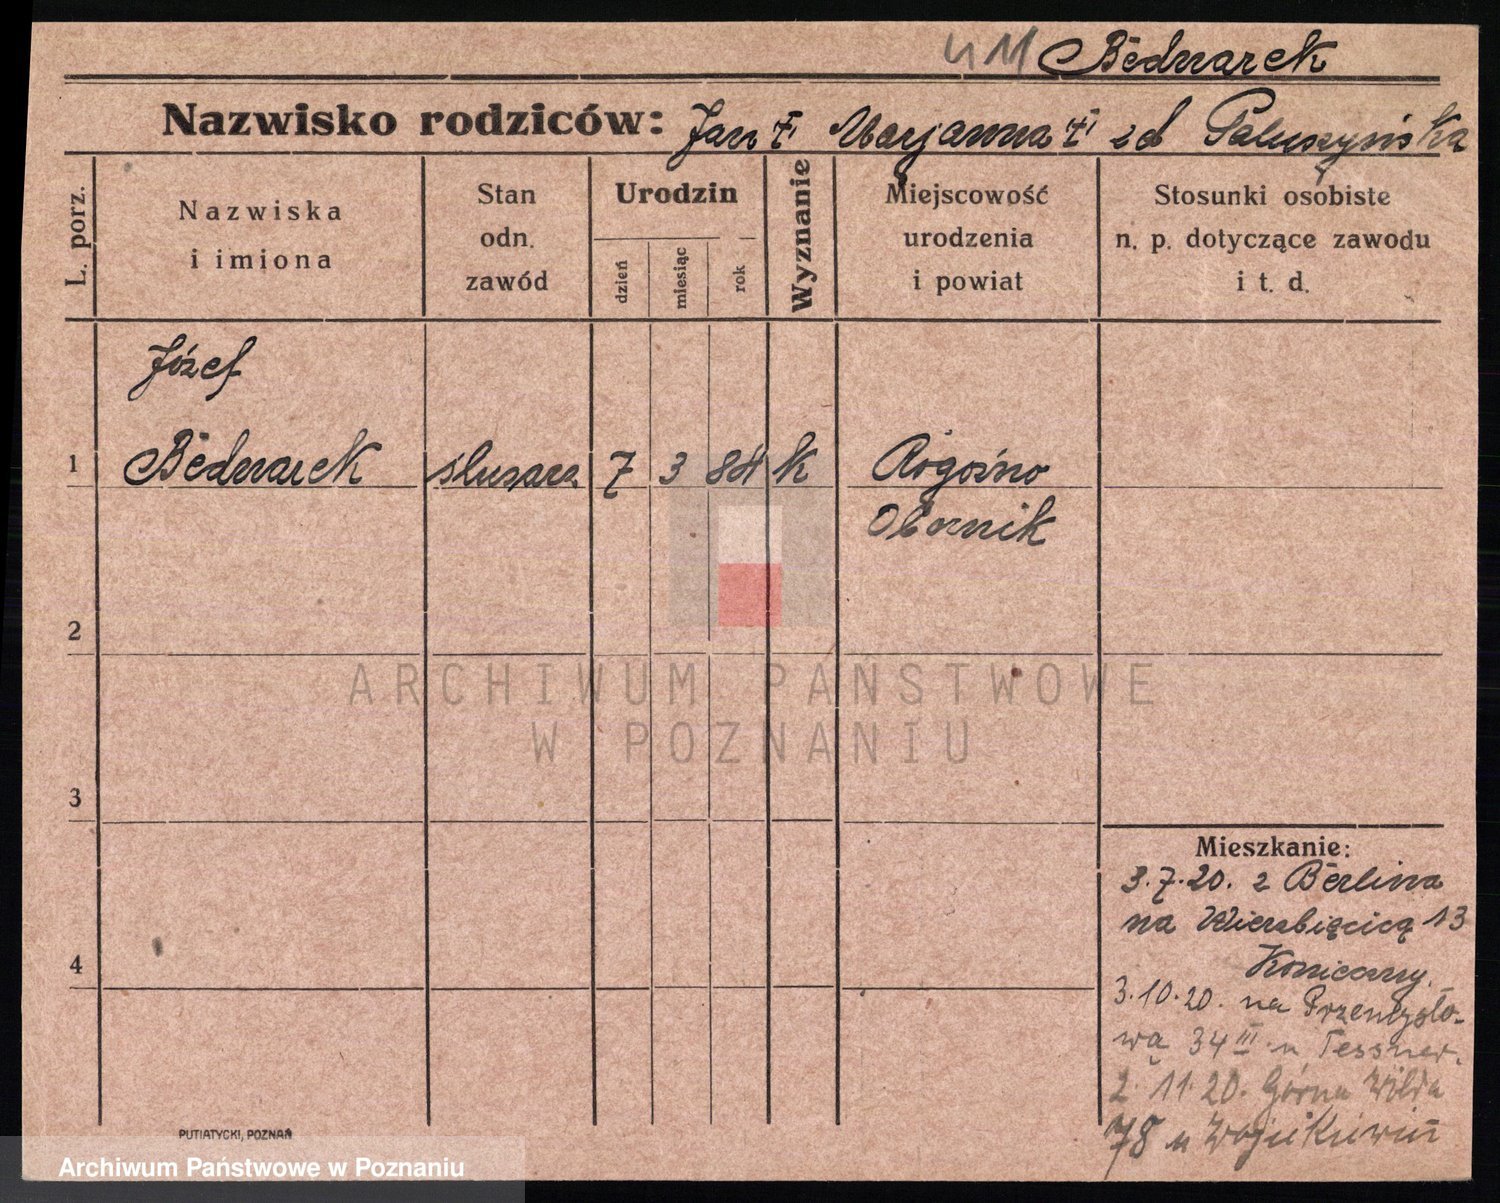 Bednarek
Nazwisko rodziców: Jan † Marjanna † zd Paluszyńska
L. porz.
Nazwiska
i imiona
Stan
odn.
zawód
Urodzin
dzień
miesiąc
rok
Wyznanie
Miejscowość
urodzenia
i powiat
Stosunki osobiste
n. p. dotyczące zawodu
i t. d.
Józef
1 Bednarek ślusarz 7 3 84 k Rogoźno
Obornik
2
3
4
ARCHIWUM PAŃSTWOWE
W POZNANIU
Mieszkanie:
3.7.20. z Berlina
na Wierzbięcice 13
3.10.20. na Przemysło-
wą 34 III u Tessner.
2.11.20. Górna Wilda
78 u
PUTIATYCKI, POZNAŃ
Archiwum Państwowe w Poznaniu